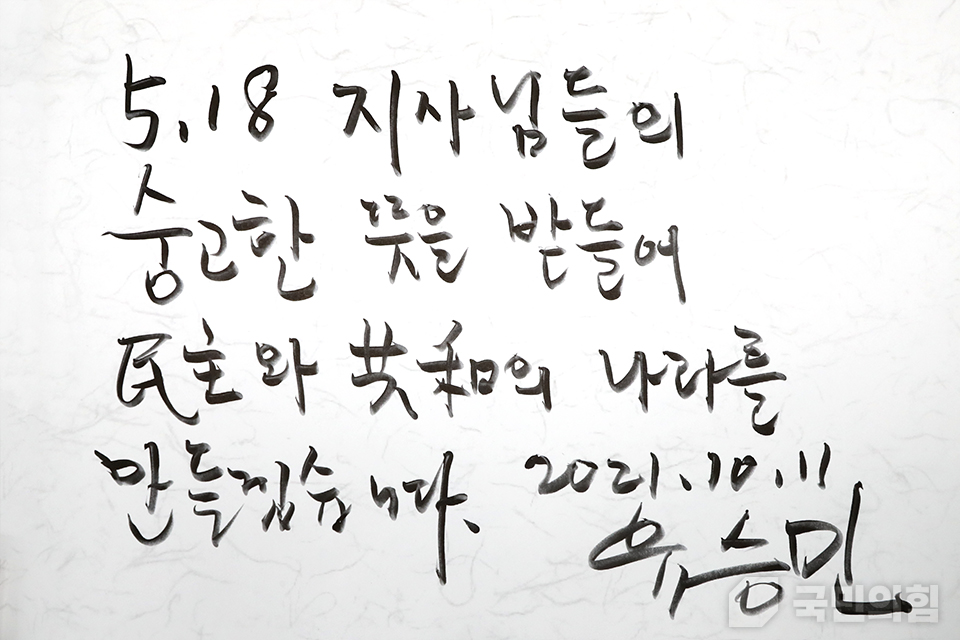 5.18 지사님들의
숭고한 뜻을 받들어
民主와 共和의 나라를
만들겠습니다. 2021.10.11
유승민
국민의힘